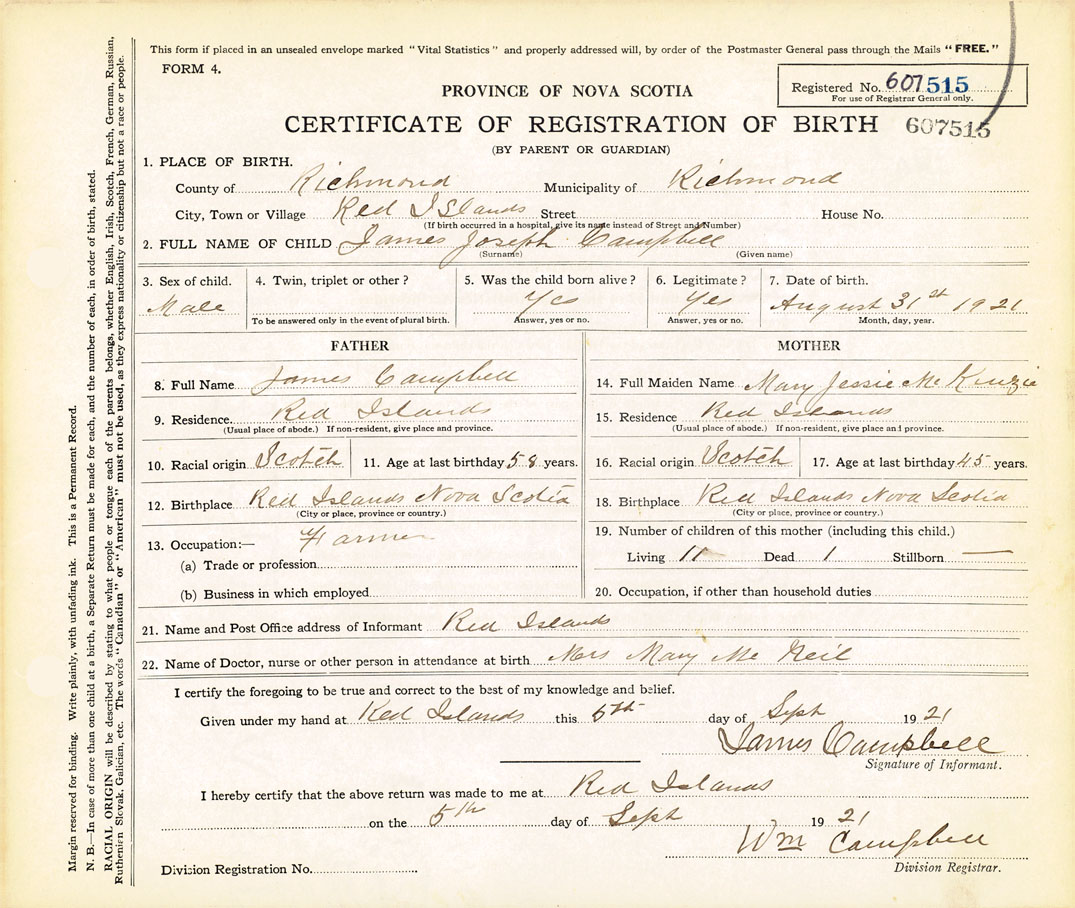 This form if placed in an unsealed envelope marked "Vital Statistics" and properly addressed will, by order of the Postmaster General pass through the Mails "FREE."
FORM 4.
Registered No. 607515
For use of Registrar General only.
PROVINCE OF NOVA SCOTIA
CERTIFICATE OF REGISTRATION OF BIRTH 607515
(BY PARENT OR GUARDIAN)
1. PLACE OF BIRTH.
County of Richmond Municipality of Richmond
City, Town or Village Red Islands Street House No.
(If birth occurred in a hospital, give its name instead of Street and Number)
2. FULL NAME OF CHILD James Joseph Campbell
(Surname) (Given name)
3. Sex of child. 4. Twin, triplet or other? 5. Was the child born alive? 6. Legitimate? 7. Date of birth.
Male Yes Yes August 31st 1921
To be answered only in the event of plural birth. Answer, yes or no. Answer, yes or no. Month, day, year.
FATHER
8. Full Name James Campbell
9. Residence. Red Islands
(Usual place of abode.) If non-resident, give place and province.
10. Racial origin Scotch 11. Age at last birthday 58 years.
12. Birthplace Red Islands Nova Scotia
(City or place, province or country.)
13. Occupation:— Farmer
(a) Trade or profession
(b) Business in which employed
MOTHER
14. Full Maiden Name Mary Jessie Mc Kenzie
15. Residence Red Islands
(Usual place of abode.) If non-resident, give place and province.
16. Racial origin Scotch 17. Age at last birthday 45 years.
18. Birthplace Red Islands Nova Scotia
(City or place, province or country.)
19. Number of children of this mother (including this child.)
Living 11 Dead 1 Stillborn —
20. Occupation, if other than household duties
21. Name and Post Office address of Informant Red Islands
22. Name of Doctor, nurse or other person in attendance at birth Mrs Mary Mc Neil
I certify the foregoing to be true and correct to the best of my knowledge and belief.
Given under my hand at Red Islands this 5th day of Sept 1921
James Campbell
Signature of Informant.
I hereby certify that the above return was made to me at Red Islands
on the 5th day of Sept 1921
Wm Campbell
Division Registrar.
Division Registration No.
Margin reserved for binding. Write plainly, with unfading ink. This is a Permanent Record.
N. B.—In case of more than one child at a birth, a Separate Return must be made for each, and the number of each, in order of birth, stated.
RACIAL ORIGIN will be described by stating to what people or tongue each of the parents belongs, whether English, Irish, Scotch, French, German, Russian,
Ruthenian Slovak, Galician, etc. The words "Canadian" or "American" must not be used, as they express nationality or citizenship but not a race or people.